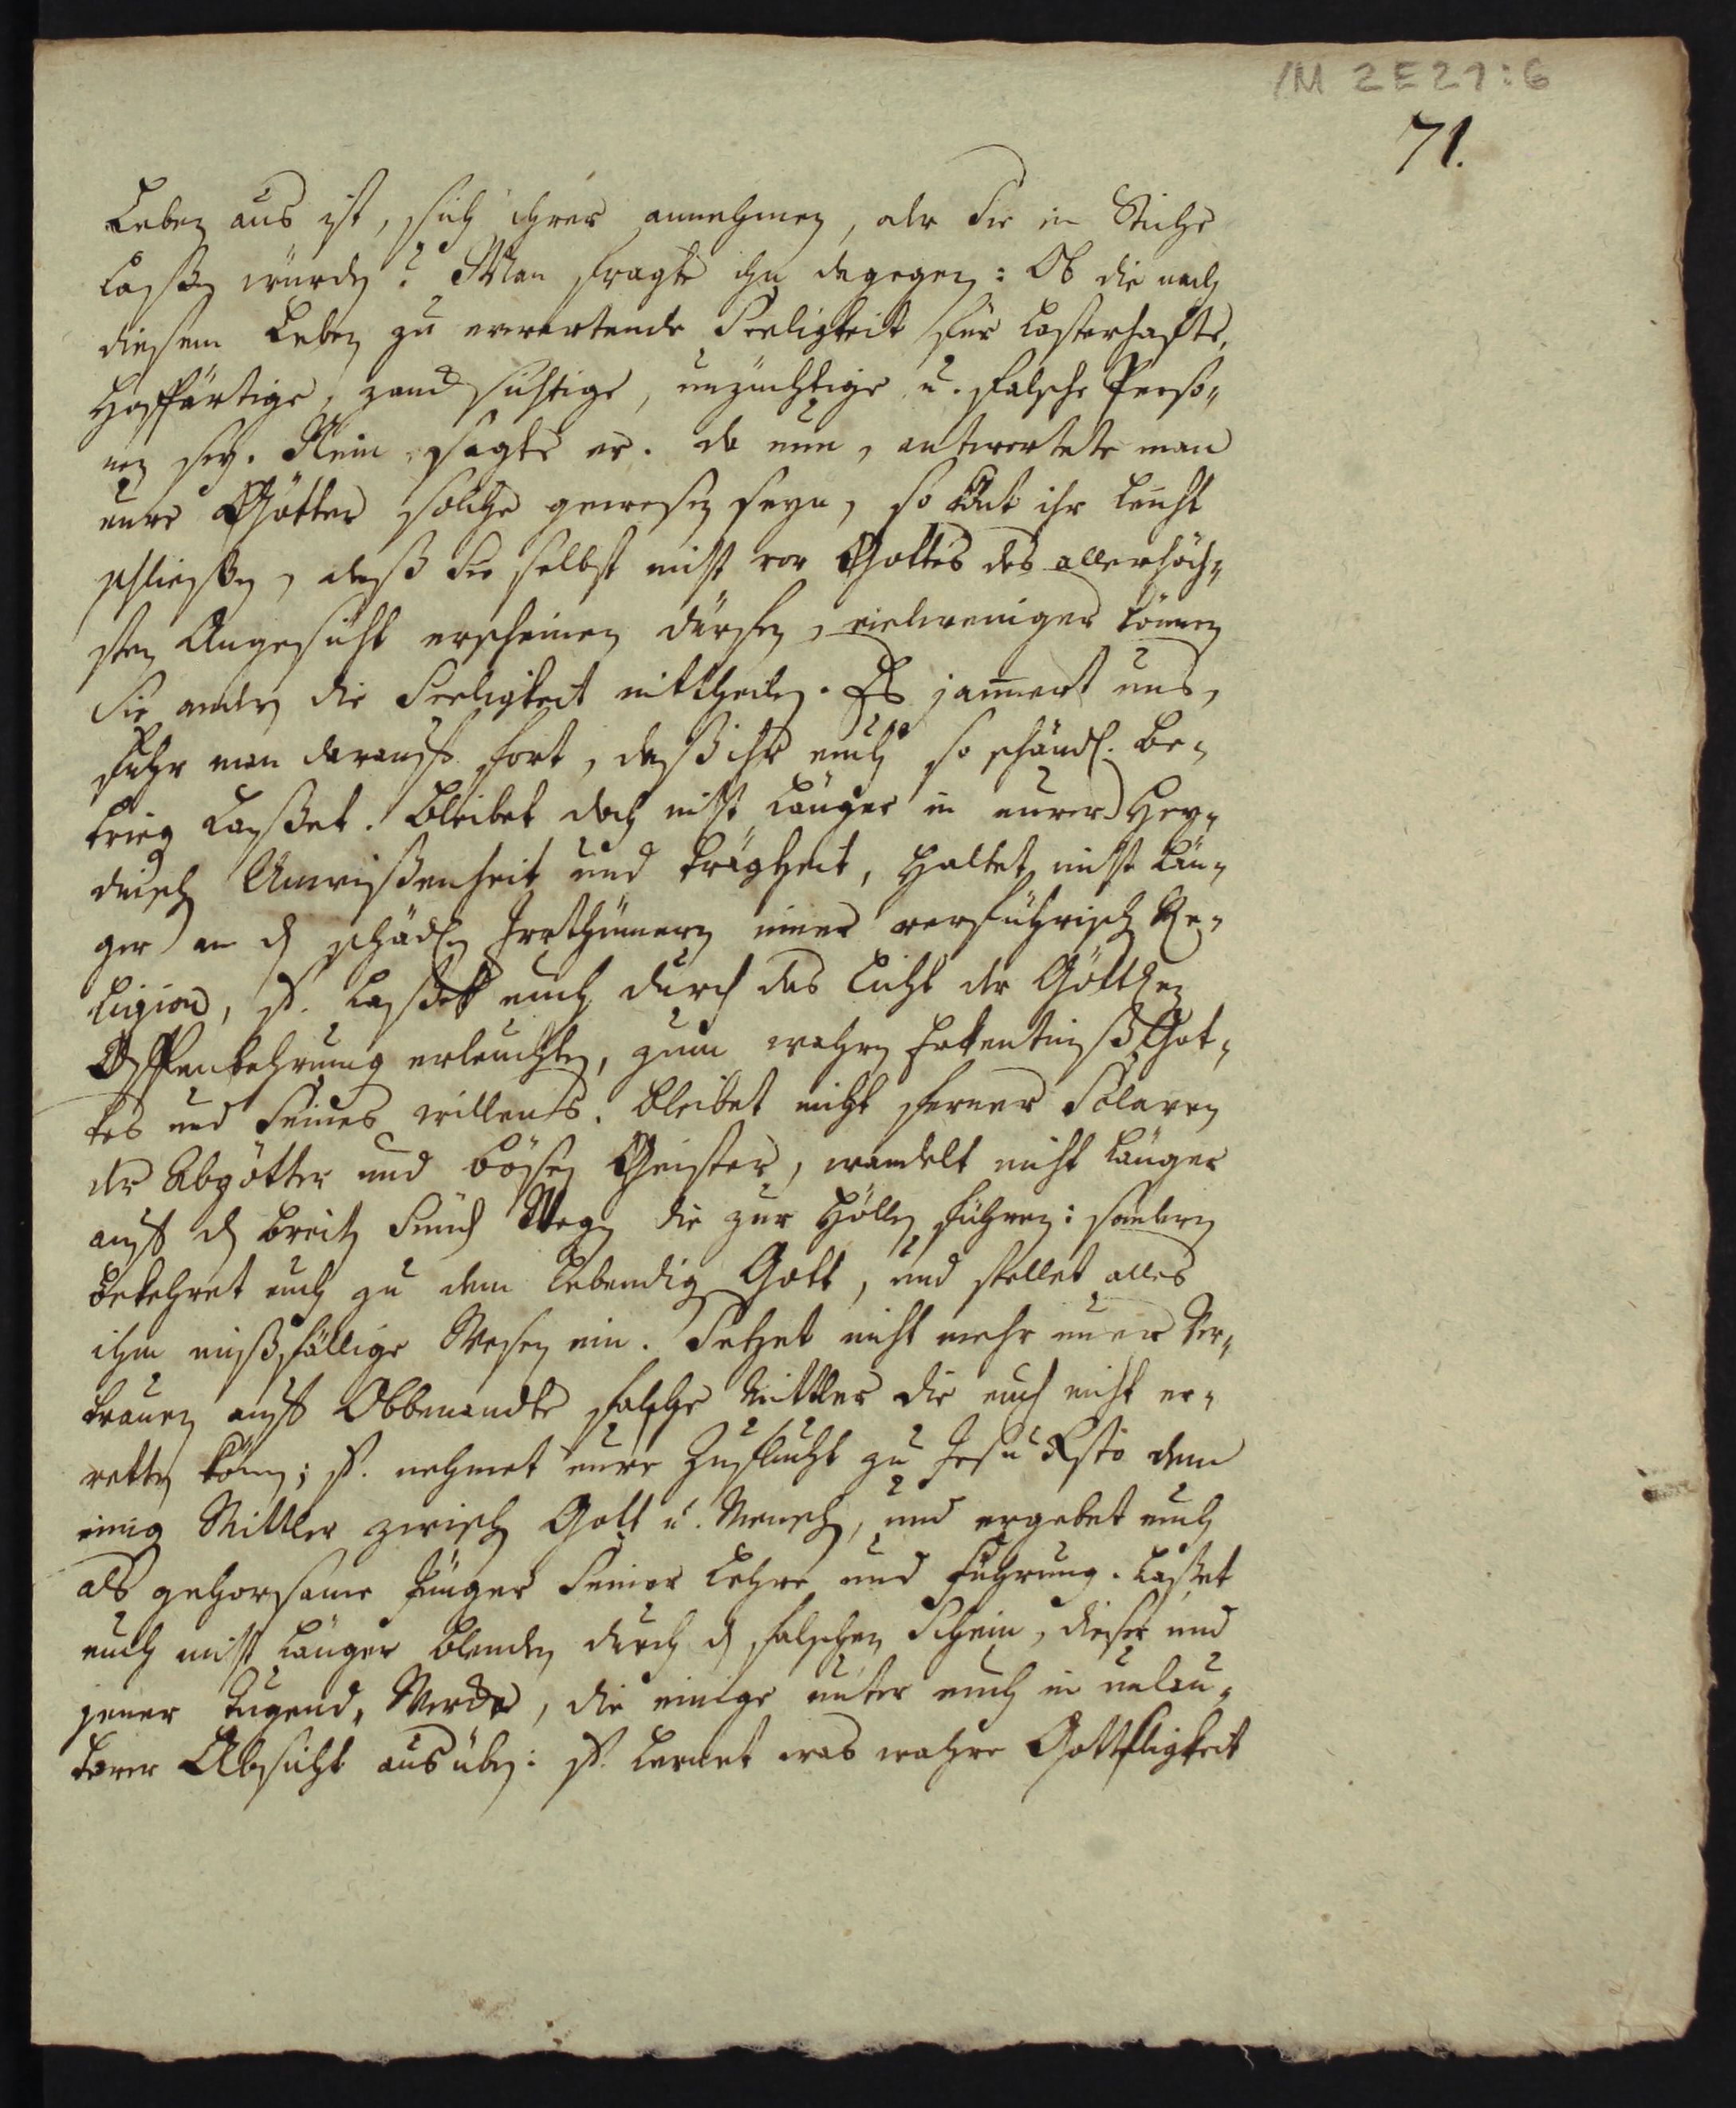 /M 2E27:6
71.
Leben aus ist, sich ihrer annehmen, oder Sie in Stiche
laßen würden? Man fragte ihn dagegen: Ob die nach
diesem Leben zu erwartende Seeligkeit für lasterhafte,
Hoffärtige, zanksüchtige, unzüchtige u. falsche Perso-
nen sey. Nein, sagte er. da nun, antwortete man
eure Götter solche gewesen seyn, so könt ihr leicht
schließen, daß Sie selbst nicht vor Gottes des allerhöch-
sten Angesicht erscheinen dürfen, vielweniger können
Sie andern die Seeligkeit mittheilen. Es jamert uns,
fuhr man darauf fort, daß ihr euch so schändl. be-
trügen laßet. Bleibet doch nicht länger in eurer Hey-
dnischen Unwißenheit und trägheit, haltet nicht län-
ger an den schädlen Irrthümern einer verführischen Re-
ligion, s. laßet euch durch das Licht der Göttlen
Offenbahrung erleuchten, zum wahren Erkentniß Got-
tes und Seines willens. Bleibet nicht ferner Sclaven
der Abgötter und bösen Geister, wandelt nicht länger
auf den breiten Sünd Wegen die zur Höllen führen: sondern
bekehret euch zu dem lebendigen Gott, und stellet alles
ihm mißfällige Wesen ein. Setzet nicht mehr euer Ver-
trauen auf Obbenandte falsche Mittler die euch nicht er-
retten könen; s. nehmet eure Zuflucht zu Jesu Xsto dem
einig Mittler zwischen Gott u. Menschen, und ergebet euch
als gehorsame Jünger Seiner Lehre und Führung. Laßet
euch nicht länger blenden durch den falschen Schein, dieser und
jener Tugend-Wercke, die einige unter euch in unlau-
terer Absicht ausüben: s. lernet was wahre Gottseligkeit